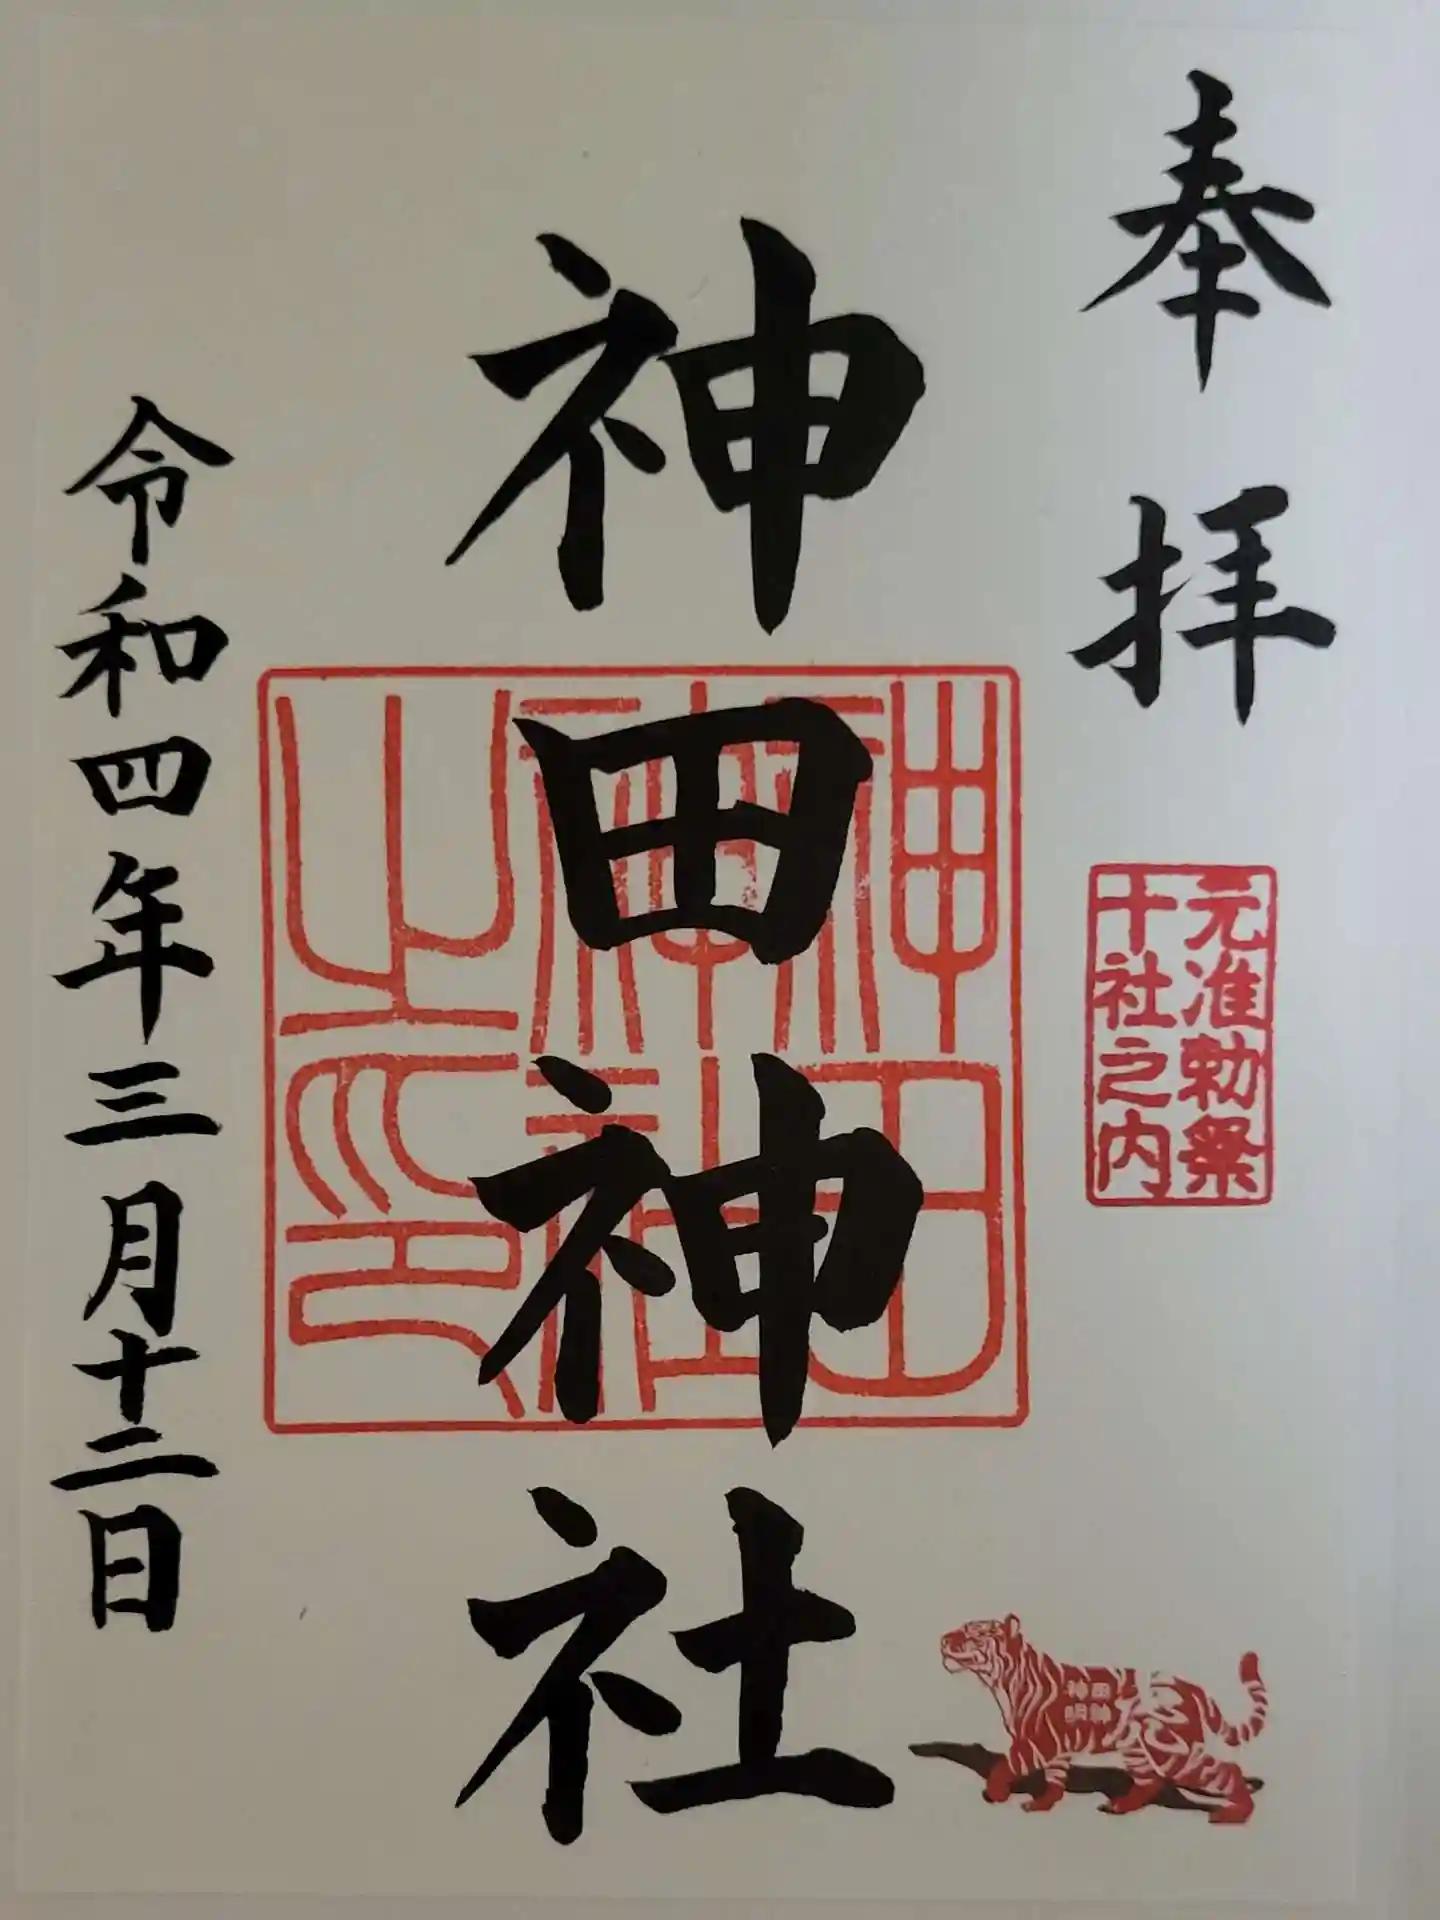 奉拝
元准勅祭
十社之内
神田神社
神田
神社
之印
令和四年三月十二日